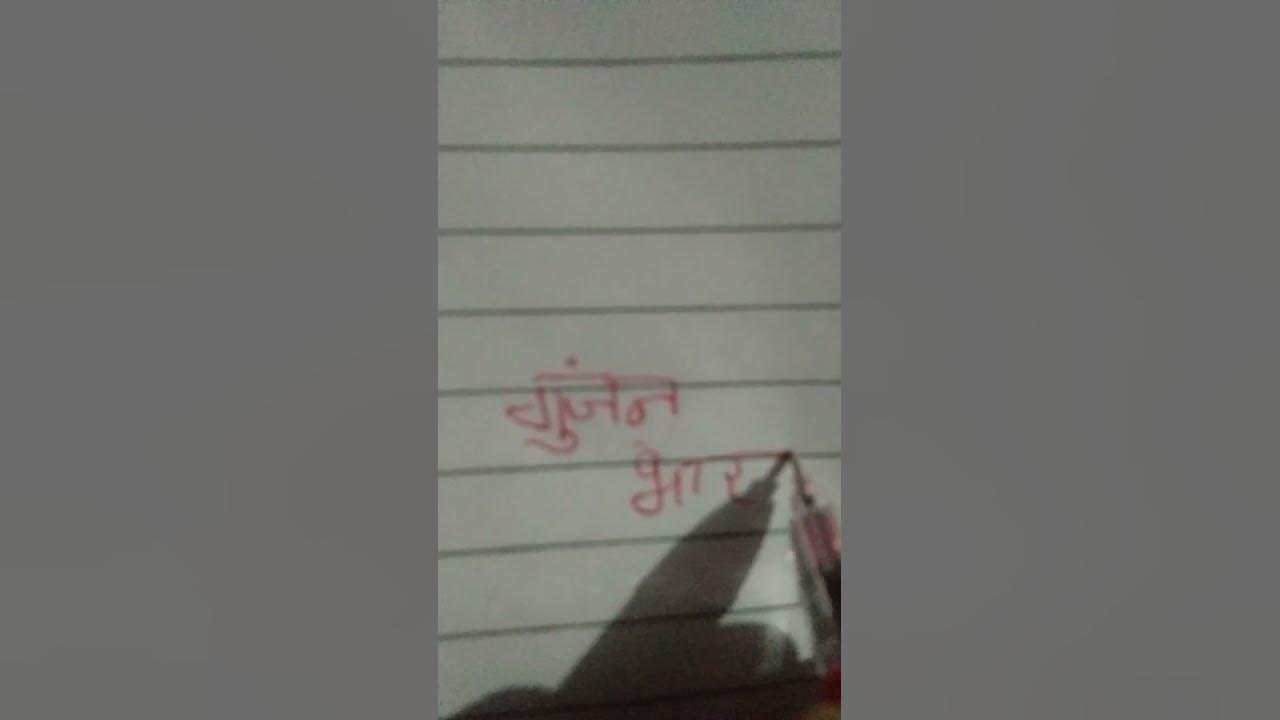 गुंजन
भार